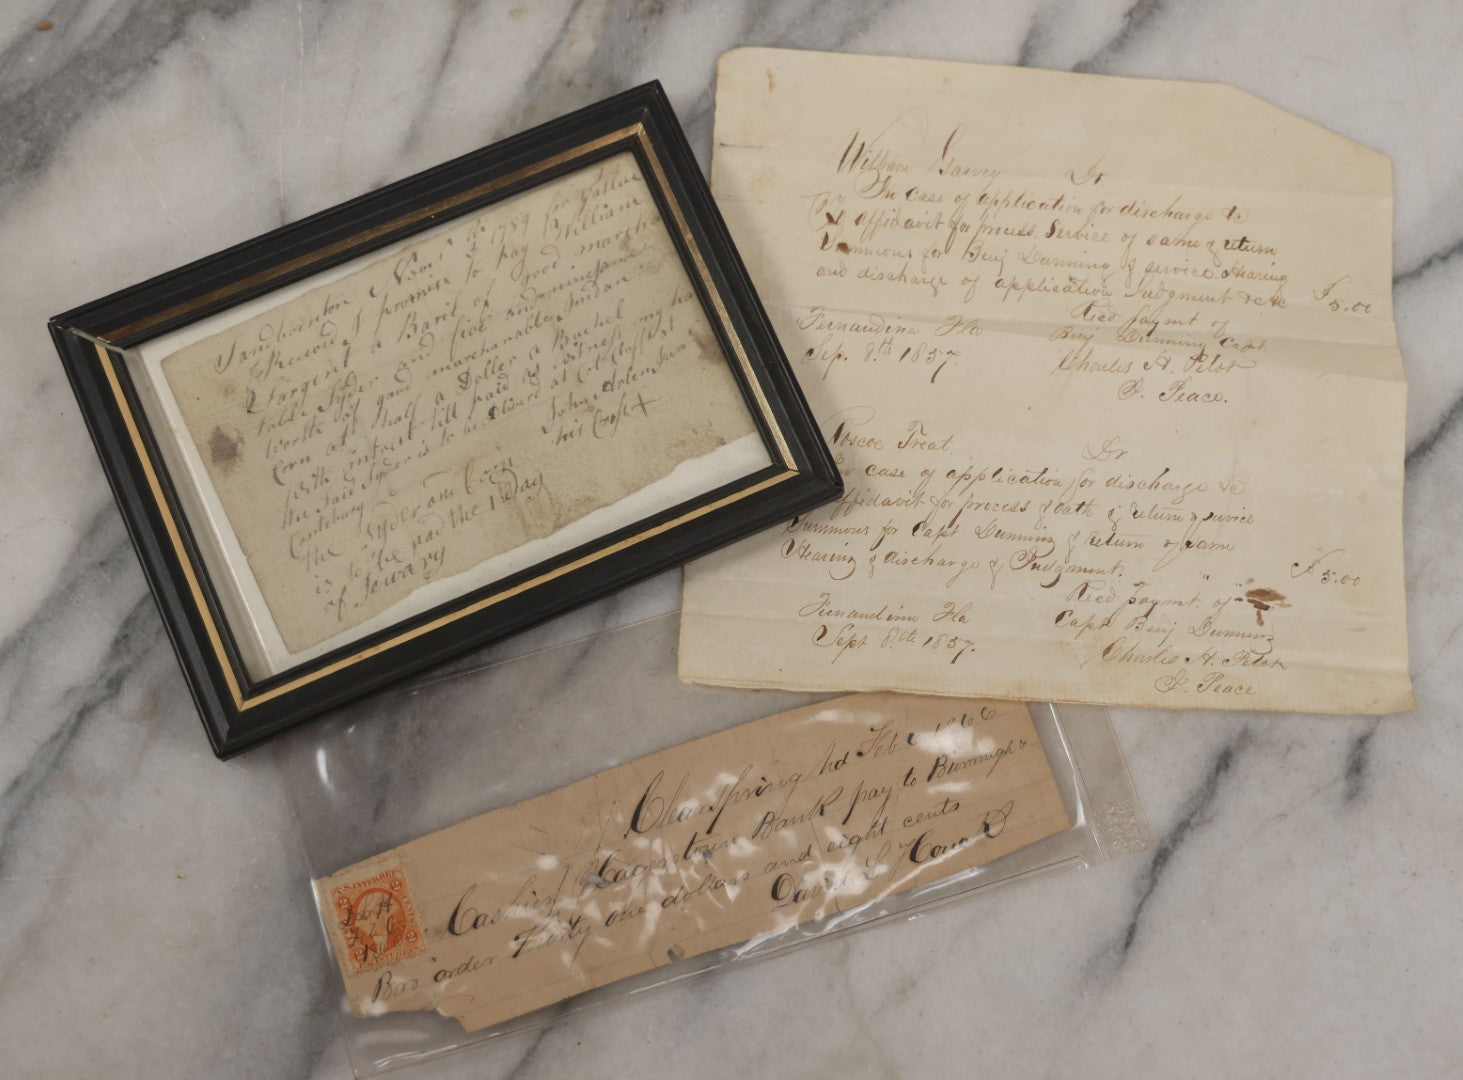 Sandhornton Novr 5th 1789 for Vallue
Received I promise to pay William
Sargent a Baril of good marcha
table Syder and five and ninepence
worth of good marchantable Indian
Corn at half a Doller a Bushel
with intrest till paid as witness my ha
the Said Syder is to be
Canterbury John
his Cross +
the Syder am
is to be paid the 1 Day
of Jewary
William Garvey Dr
In case of application for discharge &c
To affidavit for process, Service of same & return
Summons for Benj Dunning & service. Hearing
and discharge of application Judgment &c &c $5.00
Recd paymt of
Fernandina Fla Benj Dunning Capt.
Sep. 8th 1857. Charles A. Pelot
J. Peace.
Roscoe Treat. Dr
For case of application for discharge &c
affidavit for process & oath & return & service
Summons for Capt Dunning & return of same
Hearing & discharge & Judgment. " " $5.00
Recd paymt. of
Fernandina Fla Capt Benj Dunning
Sept 8th 1857. Charles A. Pelot
J. Peace
Clearspring Md Feb 6 1866
Cashier Hagerstown Bank pay to &
Bro order Thirty one dollars and eight cents
David L Howard
U.S. INTER. REV.
2 CENTS 2
D L H
F 6
186